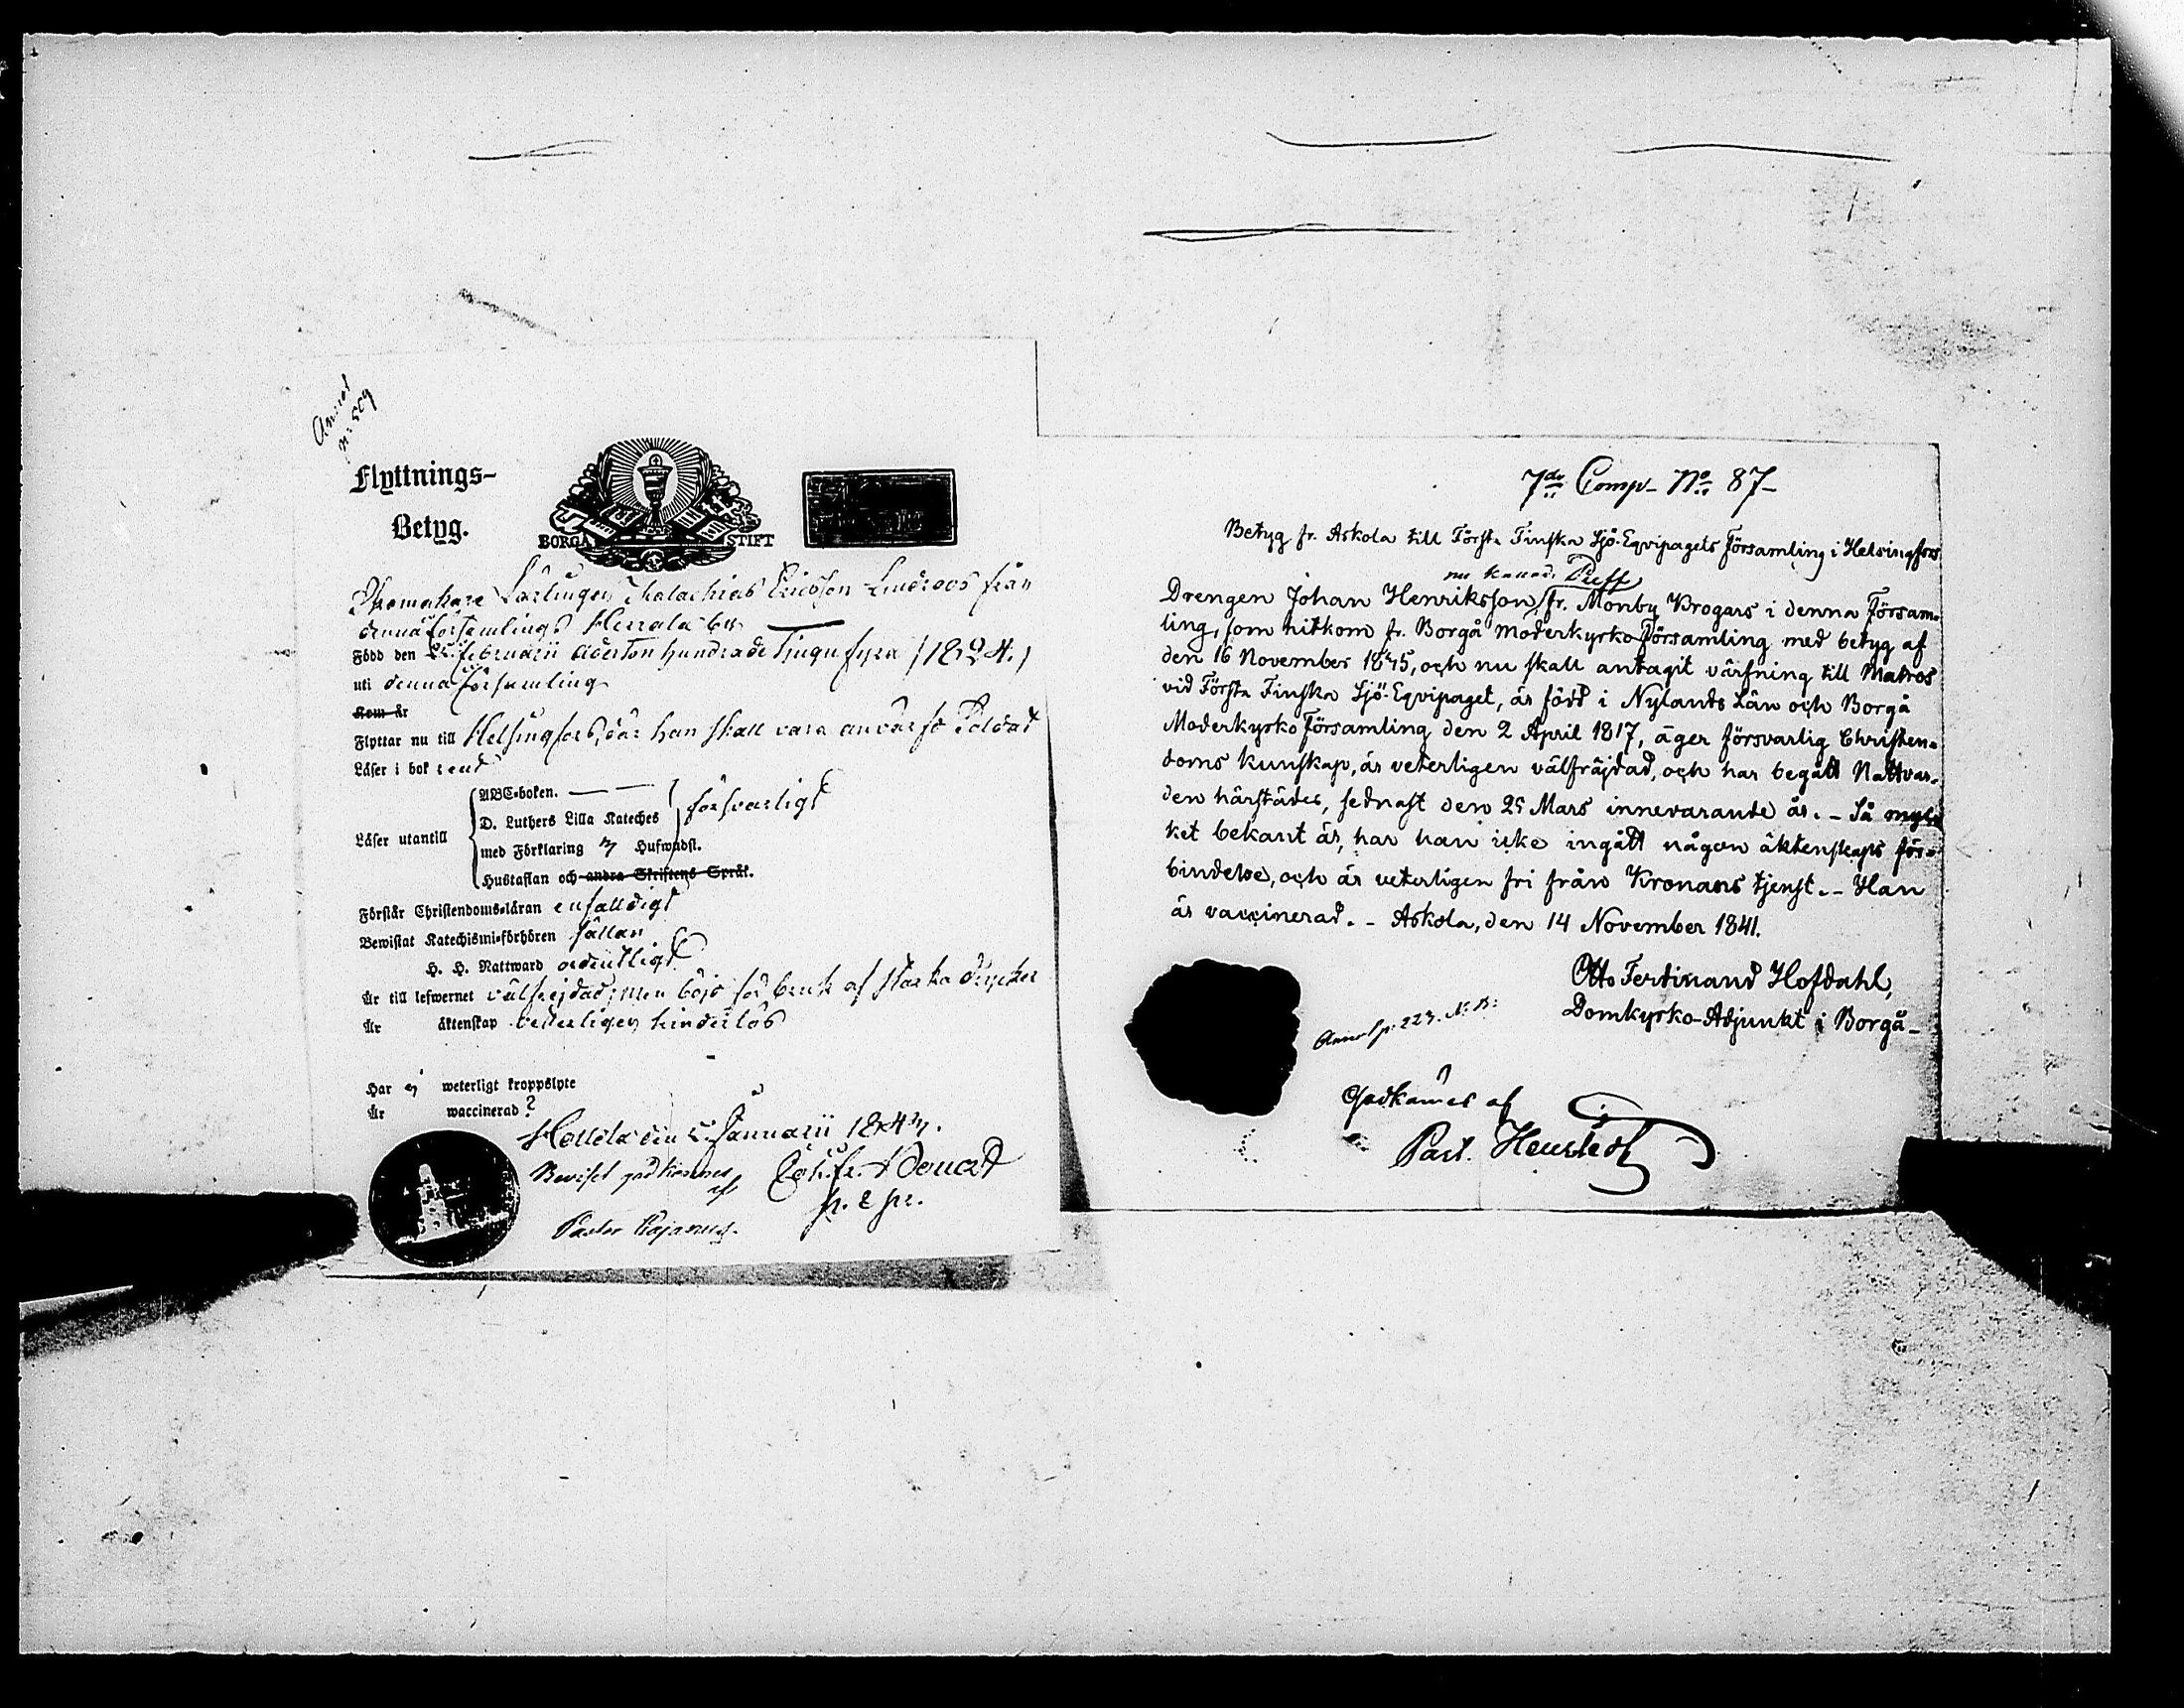 Flyttnings-
Betyg.
BORGÅ STIFT
Skomakare Lärlingen Malachias Ericsson Lindroos från
denna församlings Herrala by
Född den 25 Februarii Aderton hundrade Tjugu fyra /1824./
uti denna församling
Kom år
Flyttar nu till Helsingfors, där han skall vara anvärfd Soldat
Läser i bok rend
ABC-boken. — —
D. Luthers Lilla Kateches försvarligt
Läser utantill
med Förklaring Hufwudst.
Hustaflan och andra Skriftens Språk.
Förstår Christendoms-läran enfaldigt
Bewistat Katechismi-förhören sällan
H. H. Nattward ordentligt
Är till lefwernet välfrejdad, men böjd för bruk af starka drycker
Är äktenskap veterligen hinderlös
Har ej weterligt kroppslyte
Är waccinerad?
Hollola den 5 Januarii 1843.
Beviset godkännes af
Pastor Cajanus.
p. e pr.
7de Comp. No 87
Betyg fr. Askola till Första Finska Sjö-Eqvipagets Församling i Helsingfors
nu kallad Puff
Drengen Johan Henriksson, fr. Monby Krogars i denna Försam-
ling, som hitkom fr. Borgå Moderkyrko Församling med betyg af
den 16 November 1835, och nu skall antagit värfning till Matros
vid Första Finska Sjö-Eqvipaget, är född i Nylands Län och Borgå
Moderkyrko Församling den 2 April 1817, äger försvarlig Christen-
doms kunskap, är veterligen välfräjdad, och har begått Nattvar-
den härstädes, sednast den 25 Mars innevarande år. - Så myc-
ket bekant är, har han icke ingått någon äktenskaps för-
bindelse, och är veterligen fri från Kronans tjenst. - Han
är vaccinerad. - Askola, den 14 November 1841.
Otto Ferdinand Hofdahl,
Domkyrko-Adjunkt i Borgå
Annot p. 223. N. B:
Godkännes af
Past.